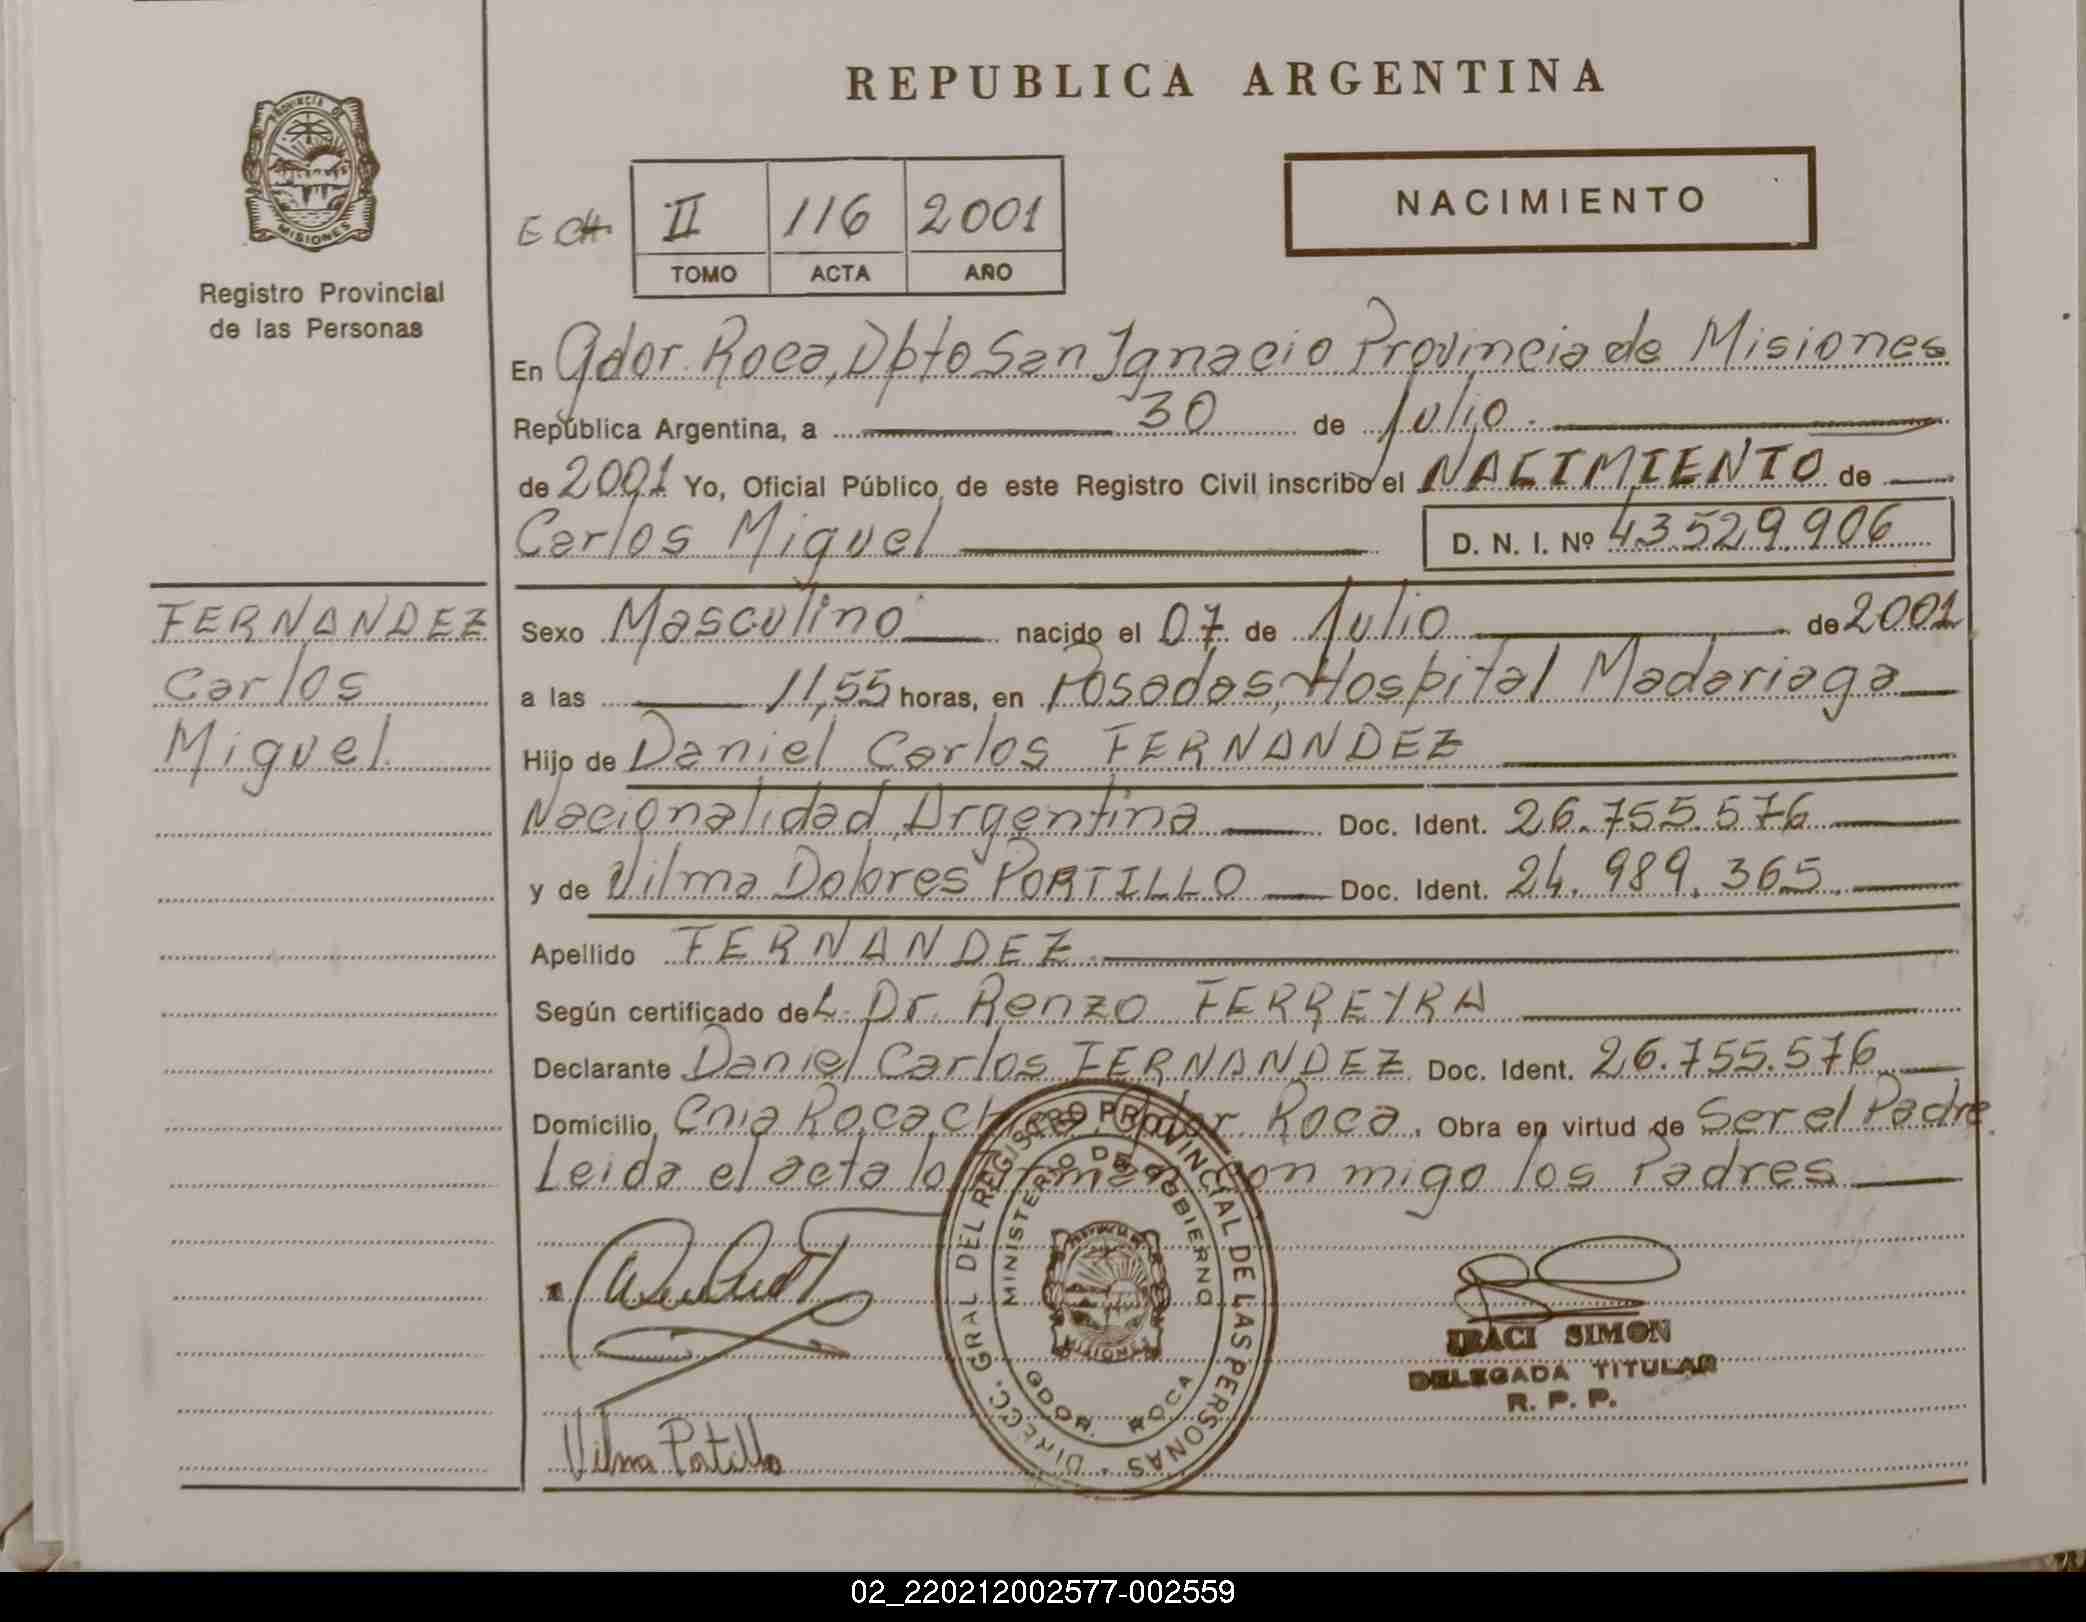 REPUBLICA ARGENTINA
PROVINCIA DE
MISIONES
Registro Provincial
de las Personas
E CH
II 116 2001
TOMO ACTA AÑO
NACIMIENTO
En Gdor. Roca, Dpto San Ignacio Provincia de Misiones
República Argentina, a 30 de Julio.
de 2001 Yo, Oficial Público de este Registro Civil inscribo el NACIMIENTO de
Carlos Miguel D. N. I. Nº 43.529.906
FERNANDEZ
Carlos
Miguel
Sexo Masculino nacido el 07 de Julio de 2001
a las 11,55 horas, en Posadas, Hospital Madariaga
Hijo de Daniel Carlos FERNANDEZ
Nacionalidad Argentina Doc. Ident. 26.755.576
y de Vilma Dolores PORTILLO Doc. Ident. 24.989.365
Apellido FERNANDEZ
Según certificado deL Dr. Renzo FERREYRA
Declarante Daniel Carlos FERNANDEZ Doc. Ident. 26.755.576
Domicilio Cnia Roca Gdor. Roca. Obra en virtud de Ser el Padre.
Leida el acta lo firman con migo los Padres
DIRECC. GRAL DEL REGISTRO PROVINCIAL DE LAS PERSONAS
MINISTERIO DE GOBIERNO
MISIONES
GDOR. ROCA
IRACI SIMON
DELEGADA TITULAR
R. P. P.
Vilma Portillo
02_220212002577-002559